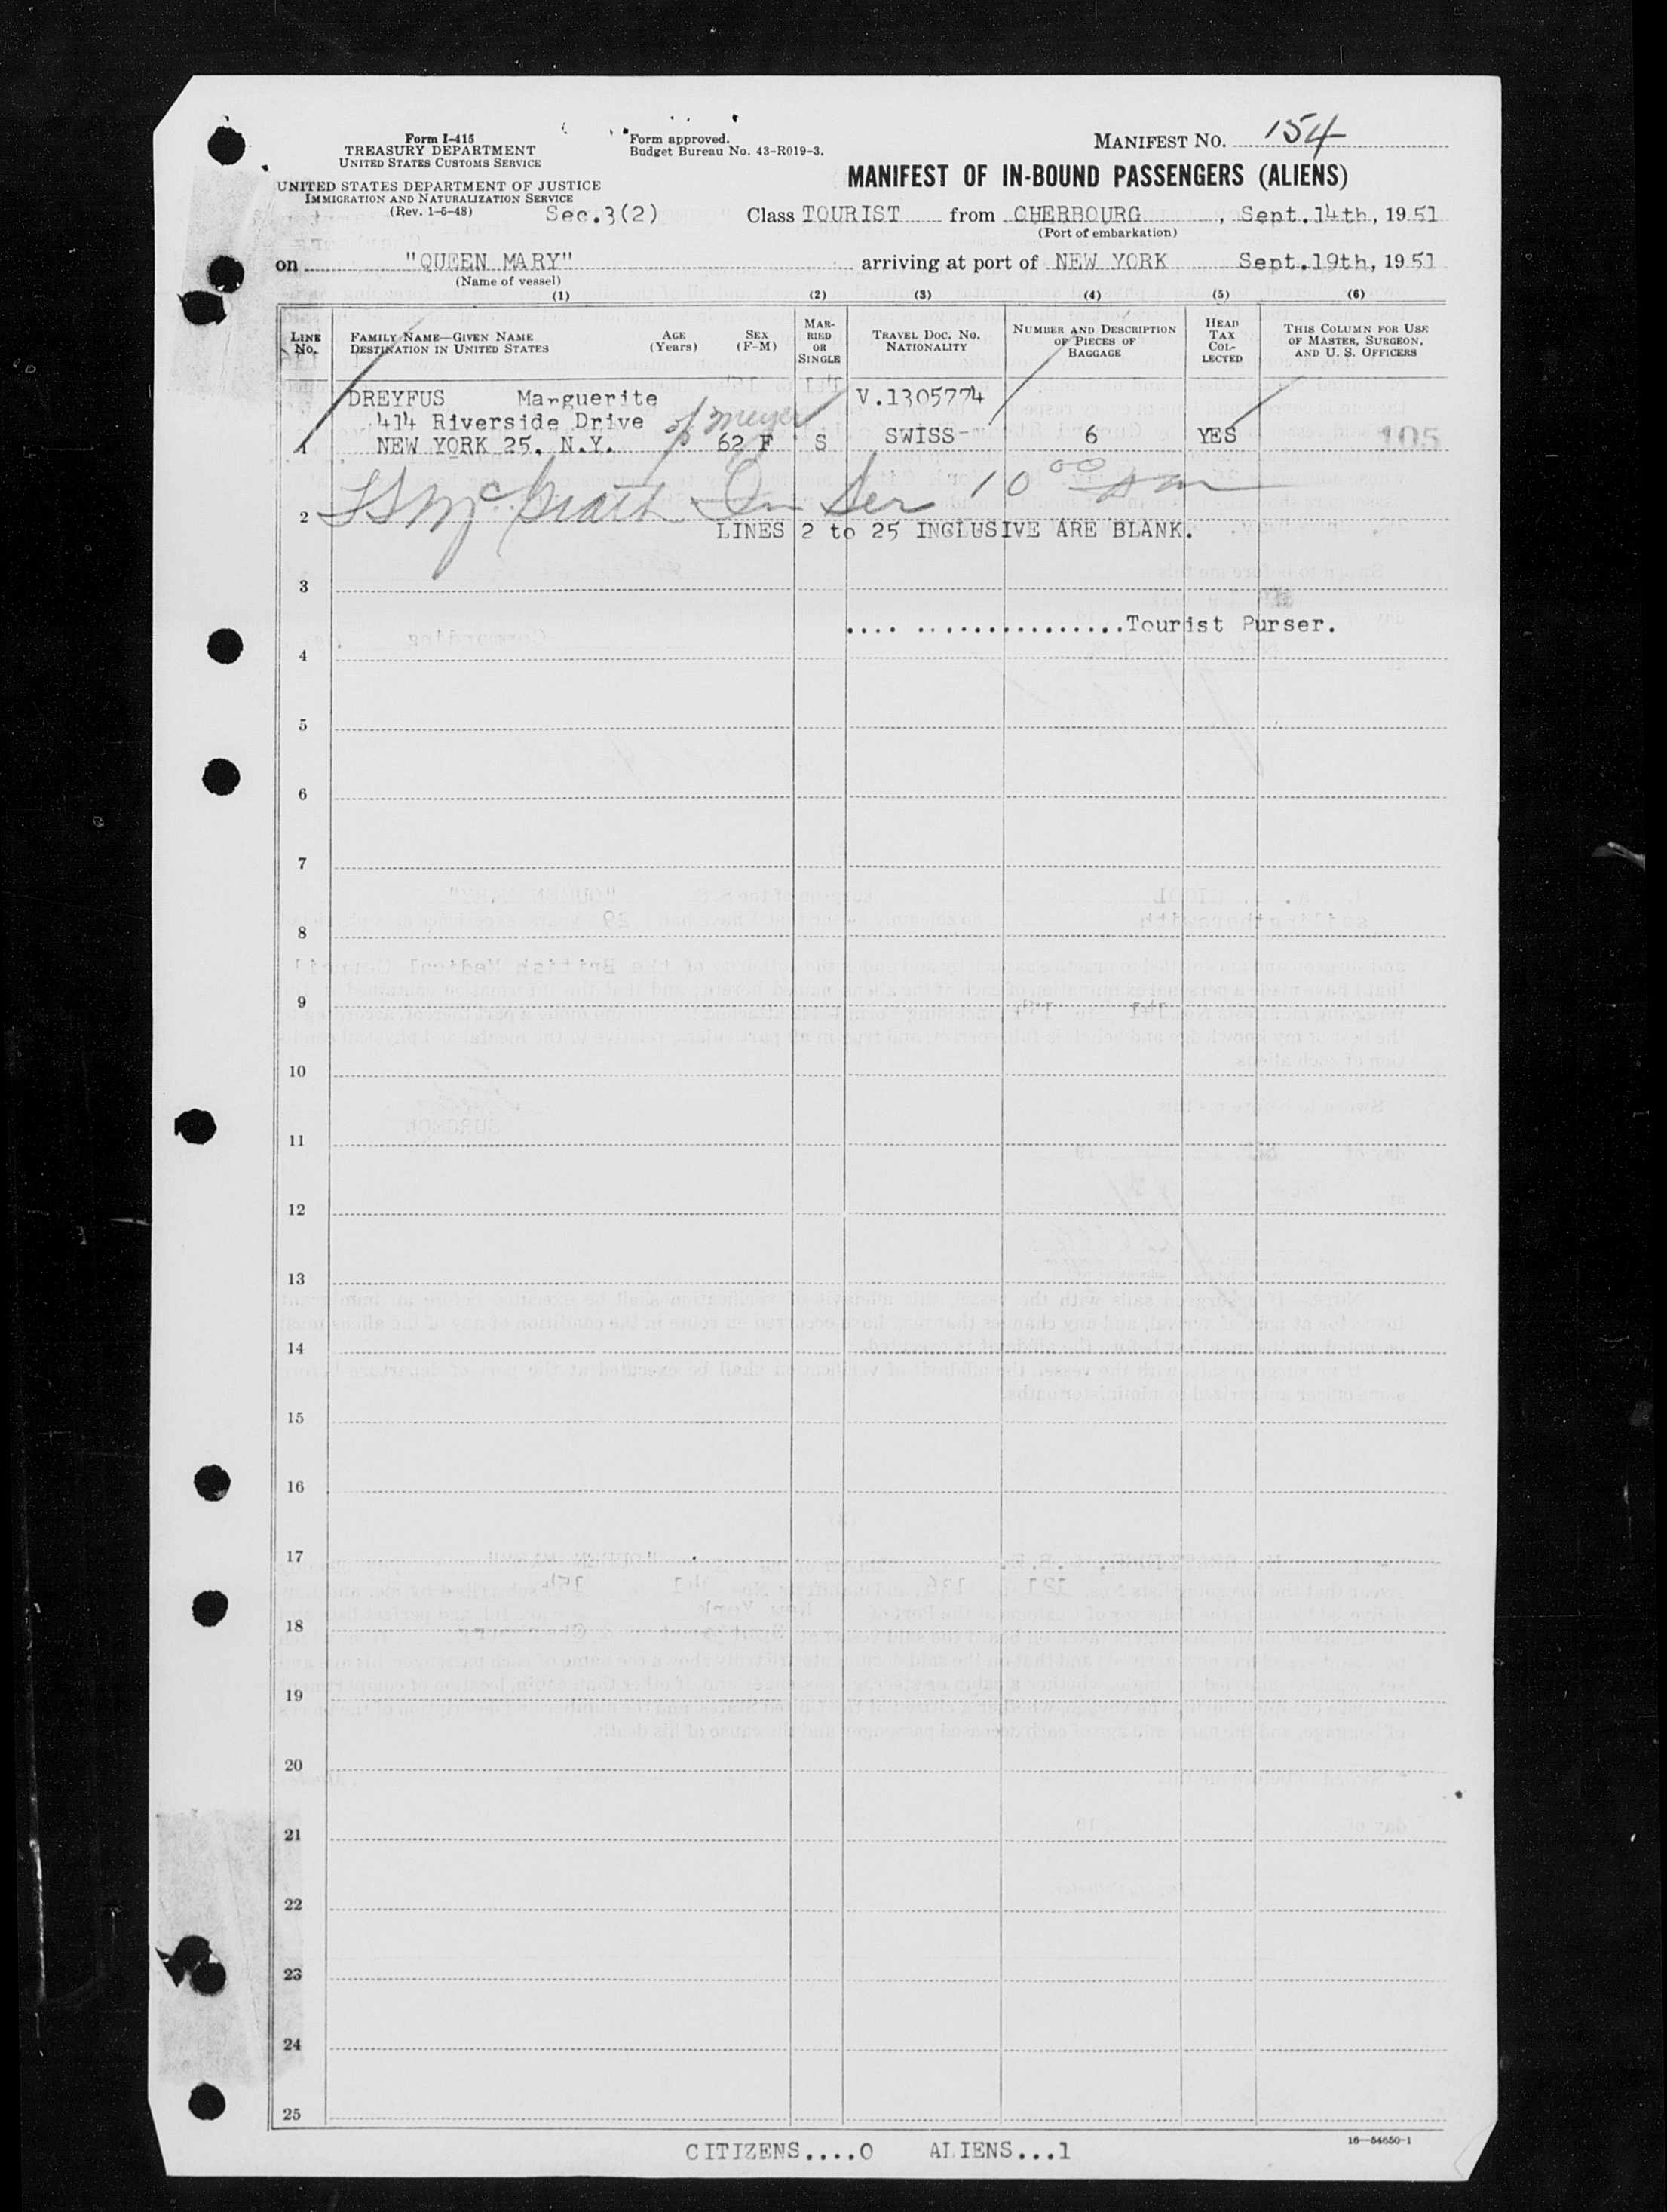 Form I-415
TREASURY DEPARTMENT
UNITED STATES CUSTOMS SERVICE
UNITED STATES DEPARTMENT OF JUSTICE
IMMIGRATION AND NATURALIZATION SERVICE
(Rev. 1-5-48)
Sec.3(2)
Form approved.
Budget Bureau No. 43-R019-3.
MANIFEST NO. 154
MANIFEST OF IN-BOUND PASSENGERS (ALIENS)
Class TOURIST from CHERBOURG, Sept.14th, 1951
(Port of embarkation)
on "QUEEN MARY" arriving at port of NEW YORK Sept.19th, 1951
(Name of vessel)
(1) (2) (3) (4) (5) (6)
LINE No.
FAMILY NAME—GIVEN NAME
DESTINATION IN UNITED STATES
AGE (Years)
SEX (F-M)
MARRIED OR SINGLE
TRAVEL DOC. NO.
NATIONALITY
NUMBER AND DESCRIPTION OF PIECES OF BAGGAGE
HEAD TAX COLLECTED
THIS COLUMN FOR USE OF MASTER, SURGEON, AND U. S. OFFICERS
DREYFUS Marguerite V.1305774
414 Riverside Drive
1 NEW YORK 25. N.Y. 62 F S SWISS- 6 YES 105
Meyer
McGrath 10 00
2
LINES 2 to 25 INCLUSIVE ARE BLANK.
3
.... ................Tourist Purser.
4
5
6
7
8
9
10
11
12
13
14
15
16
17
18
19
20
21
22
23
24
25
CITIZENS....0 ALIENS...1
16—54650-1